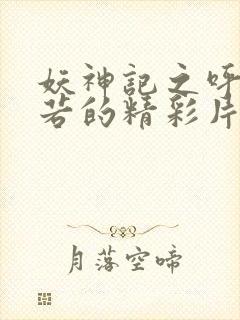 妖神記之呼
若的精彩片
月落空啼